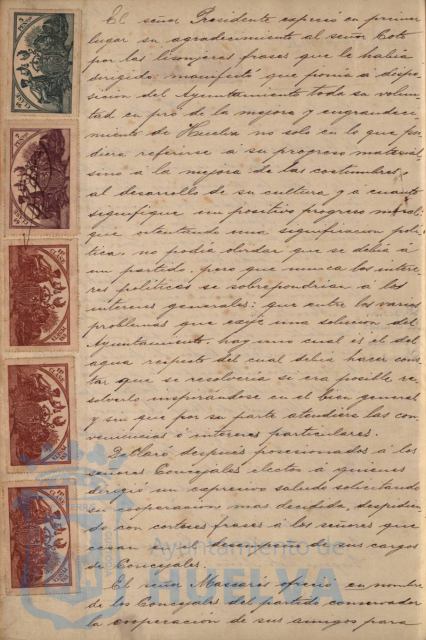 El señor Presidente expresó en primer
lugar su agradecimiento al señor Coto
por las lisonjeras frases que le había
dirigido, manifestó que ponía a dispo-
sición del Ayuntamiento toda su volun-
tad en pró de la mejora y engrandeci-
miento de Huelva no solo en lo que pu-
diera referirse á su progreso material
sinó á la mejora de las costumbres,
al desarrollo de su cultura y á cuanto
signifique un positivo progreso moral:
que ostentando una significación polí-
tica, no podía olvidar que se debía á
un partido, pero que nunca los intere-
res políticos se sobrepondrían á los
intereses generales: que entre los varios
problemas que exije una solución del
Ayuntamiento hay uno cual es el del
agua respecto del cual debía hacer cons-
tar que se resolvería si era posible re-
solverlo inspirándose en el bien general
y sin que por su parte atendiera las con-
veniencias ó intereses particulares.
Declaró después posesionados á los
señores Concejales electos á quienes
dirigió un expresivo saludo solicitando
su cooperación mas decidida, despidien-
do con corteses frases á los señores que
cesan en el desempeño de sus cargos
de Concejales.
El señor Mascarós ofreció en nombre
de los Concejales del partido conservador
la cooperación de sus amigos para
Ayuntamiento de
HUELVA